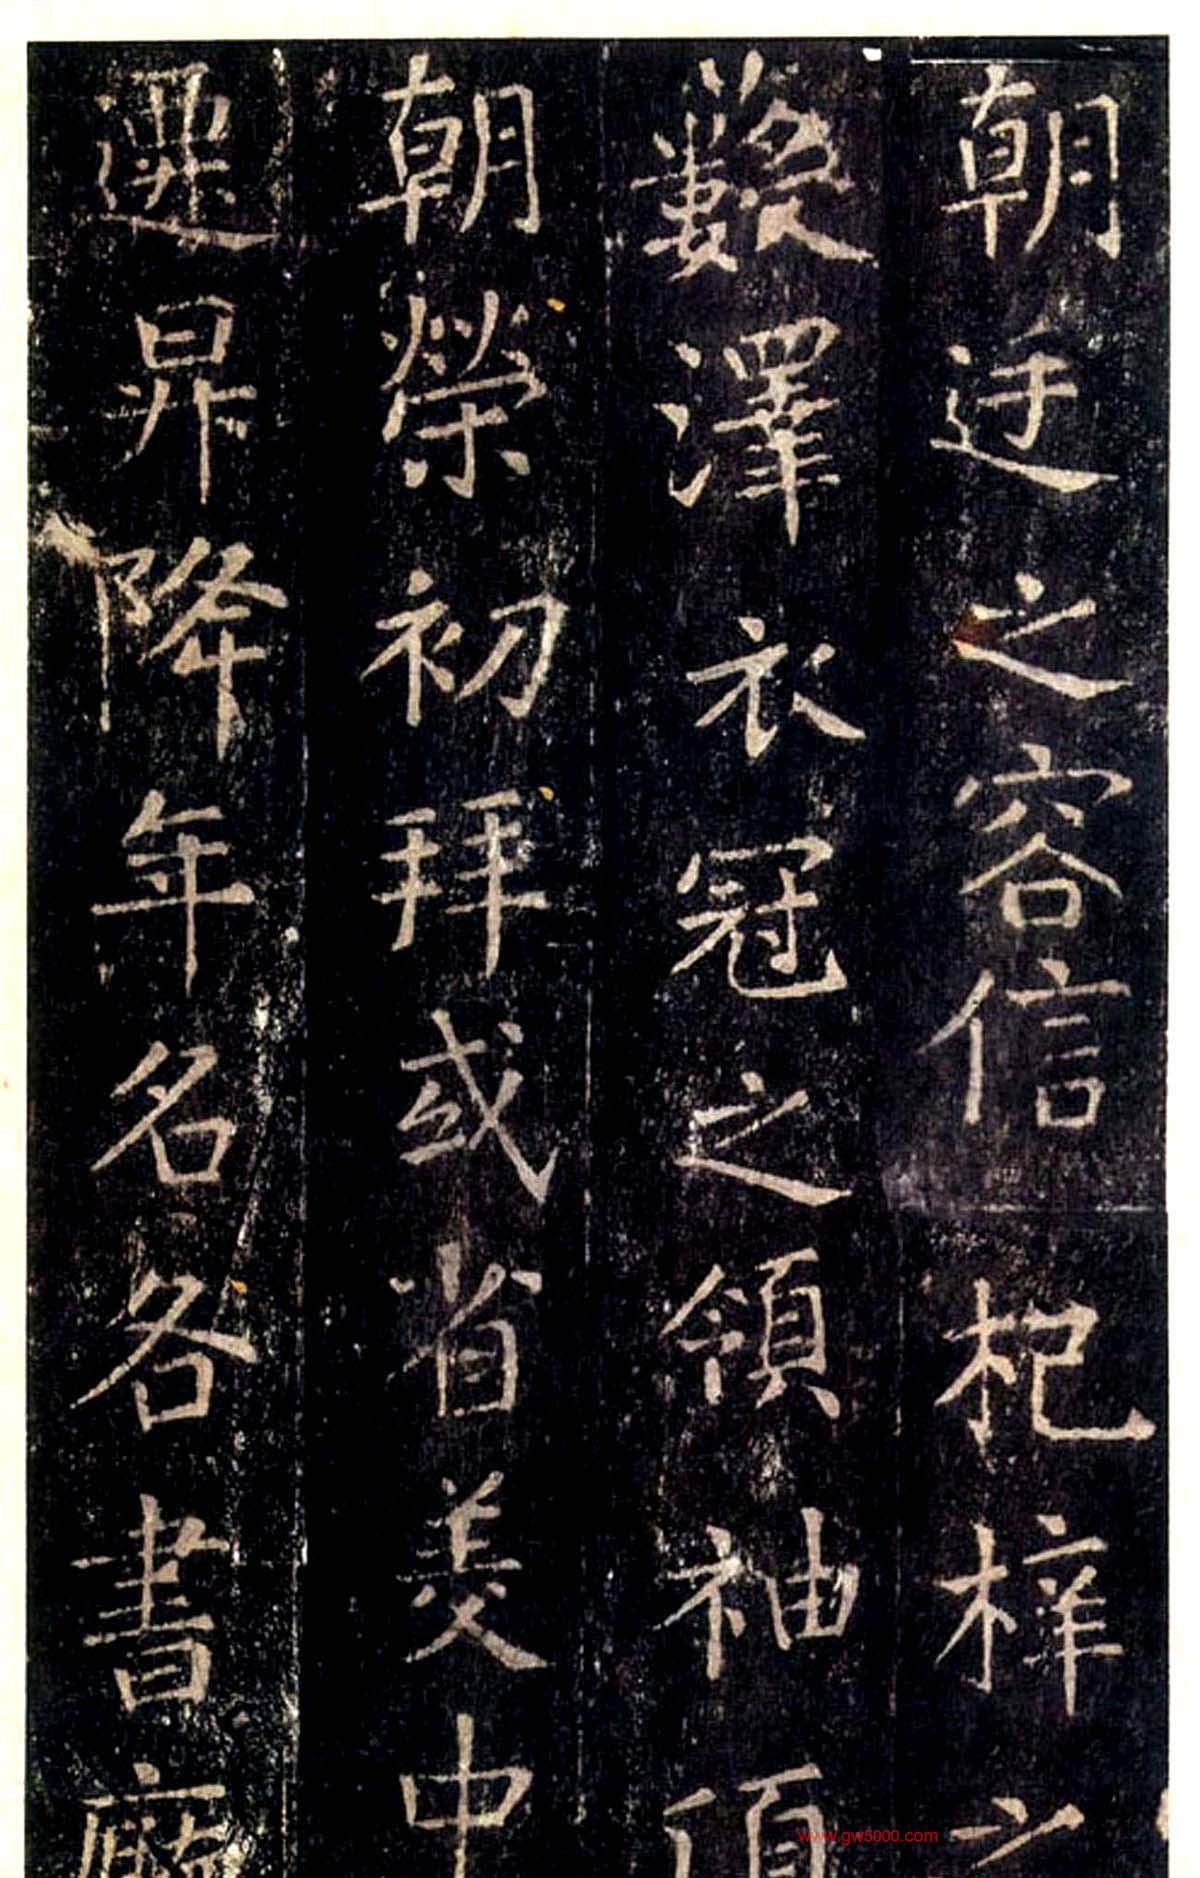 朝廷之容信杞梓之
藪澤衣冠之領袖
朝榮初拜或省美中
遷昇降年名各書廳
www.gw5000.com